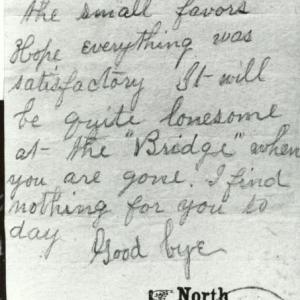 the small favors
Hope everything was
satisfactory It will
be quite lonesome
at the "Bridge" when
you are gone. I find
nothing for you to
day
Good bye
North